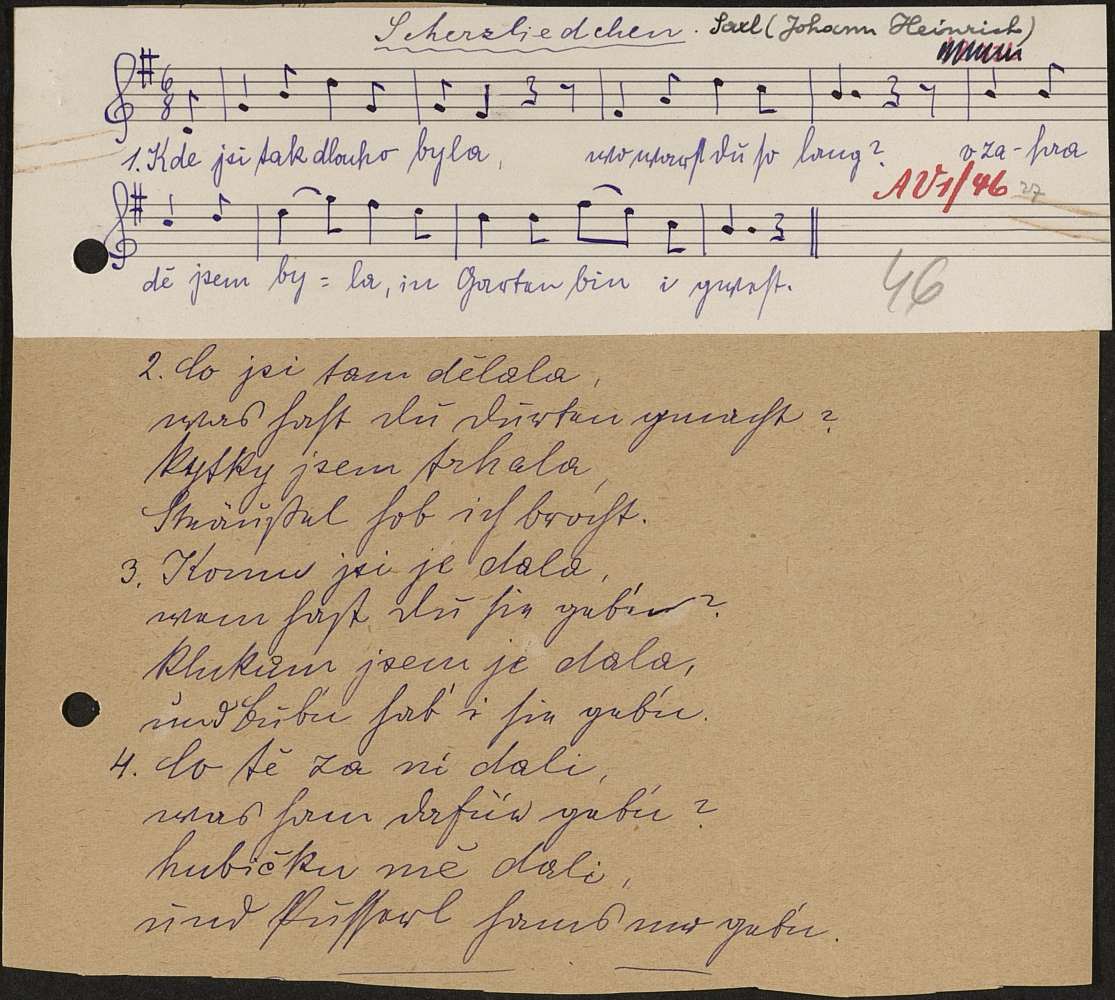 Scherzliedchen. Saxl (Johann Heinrich)
6/8
1. Kde jsi tak dlouho byla, wo warst du so lang? v za-hra
AV1/46 27
dě jsem by = la, in Garten bin i gwest.
46
2. Co jsi tam dělala,
was hast du durten gmacht?
kytky jsem trhala,
Sträußel hob ich brocht.
3. Komu jsi je dala,
wem hast du sie geb'n?
klukům jsem je dala,
und Bub'n hab' i sie geb'n.
4. Co tě za ni dali,
was ham dafür geb'n?
hubičku mě dali,
und Pusserl hams mir geb'n.